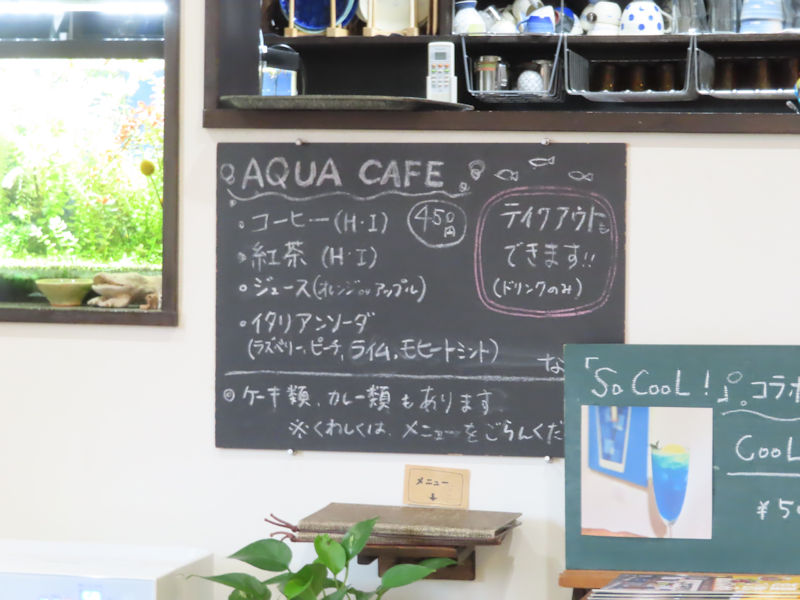 AQUA CAFE
コーヒー(H・I) 450円
紅茶 (H・I)
ジュース(オレンジorアップル)
イタリアンソーダ
(ラズベリー,ピーチ,ライム,モヒートミント)
な
◎ケーキ類、カレー類もあります
※くわしくは、メニューをごらんくだ
テイクアウトも
できます!!
(ドリンクのみ)
メニュー
↓
「So CooL!」コラボ
CooL
¥50